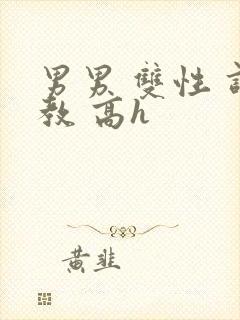 男男 雙性
教 高h
黃韭